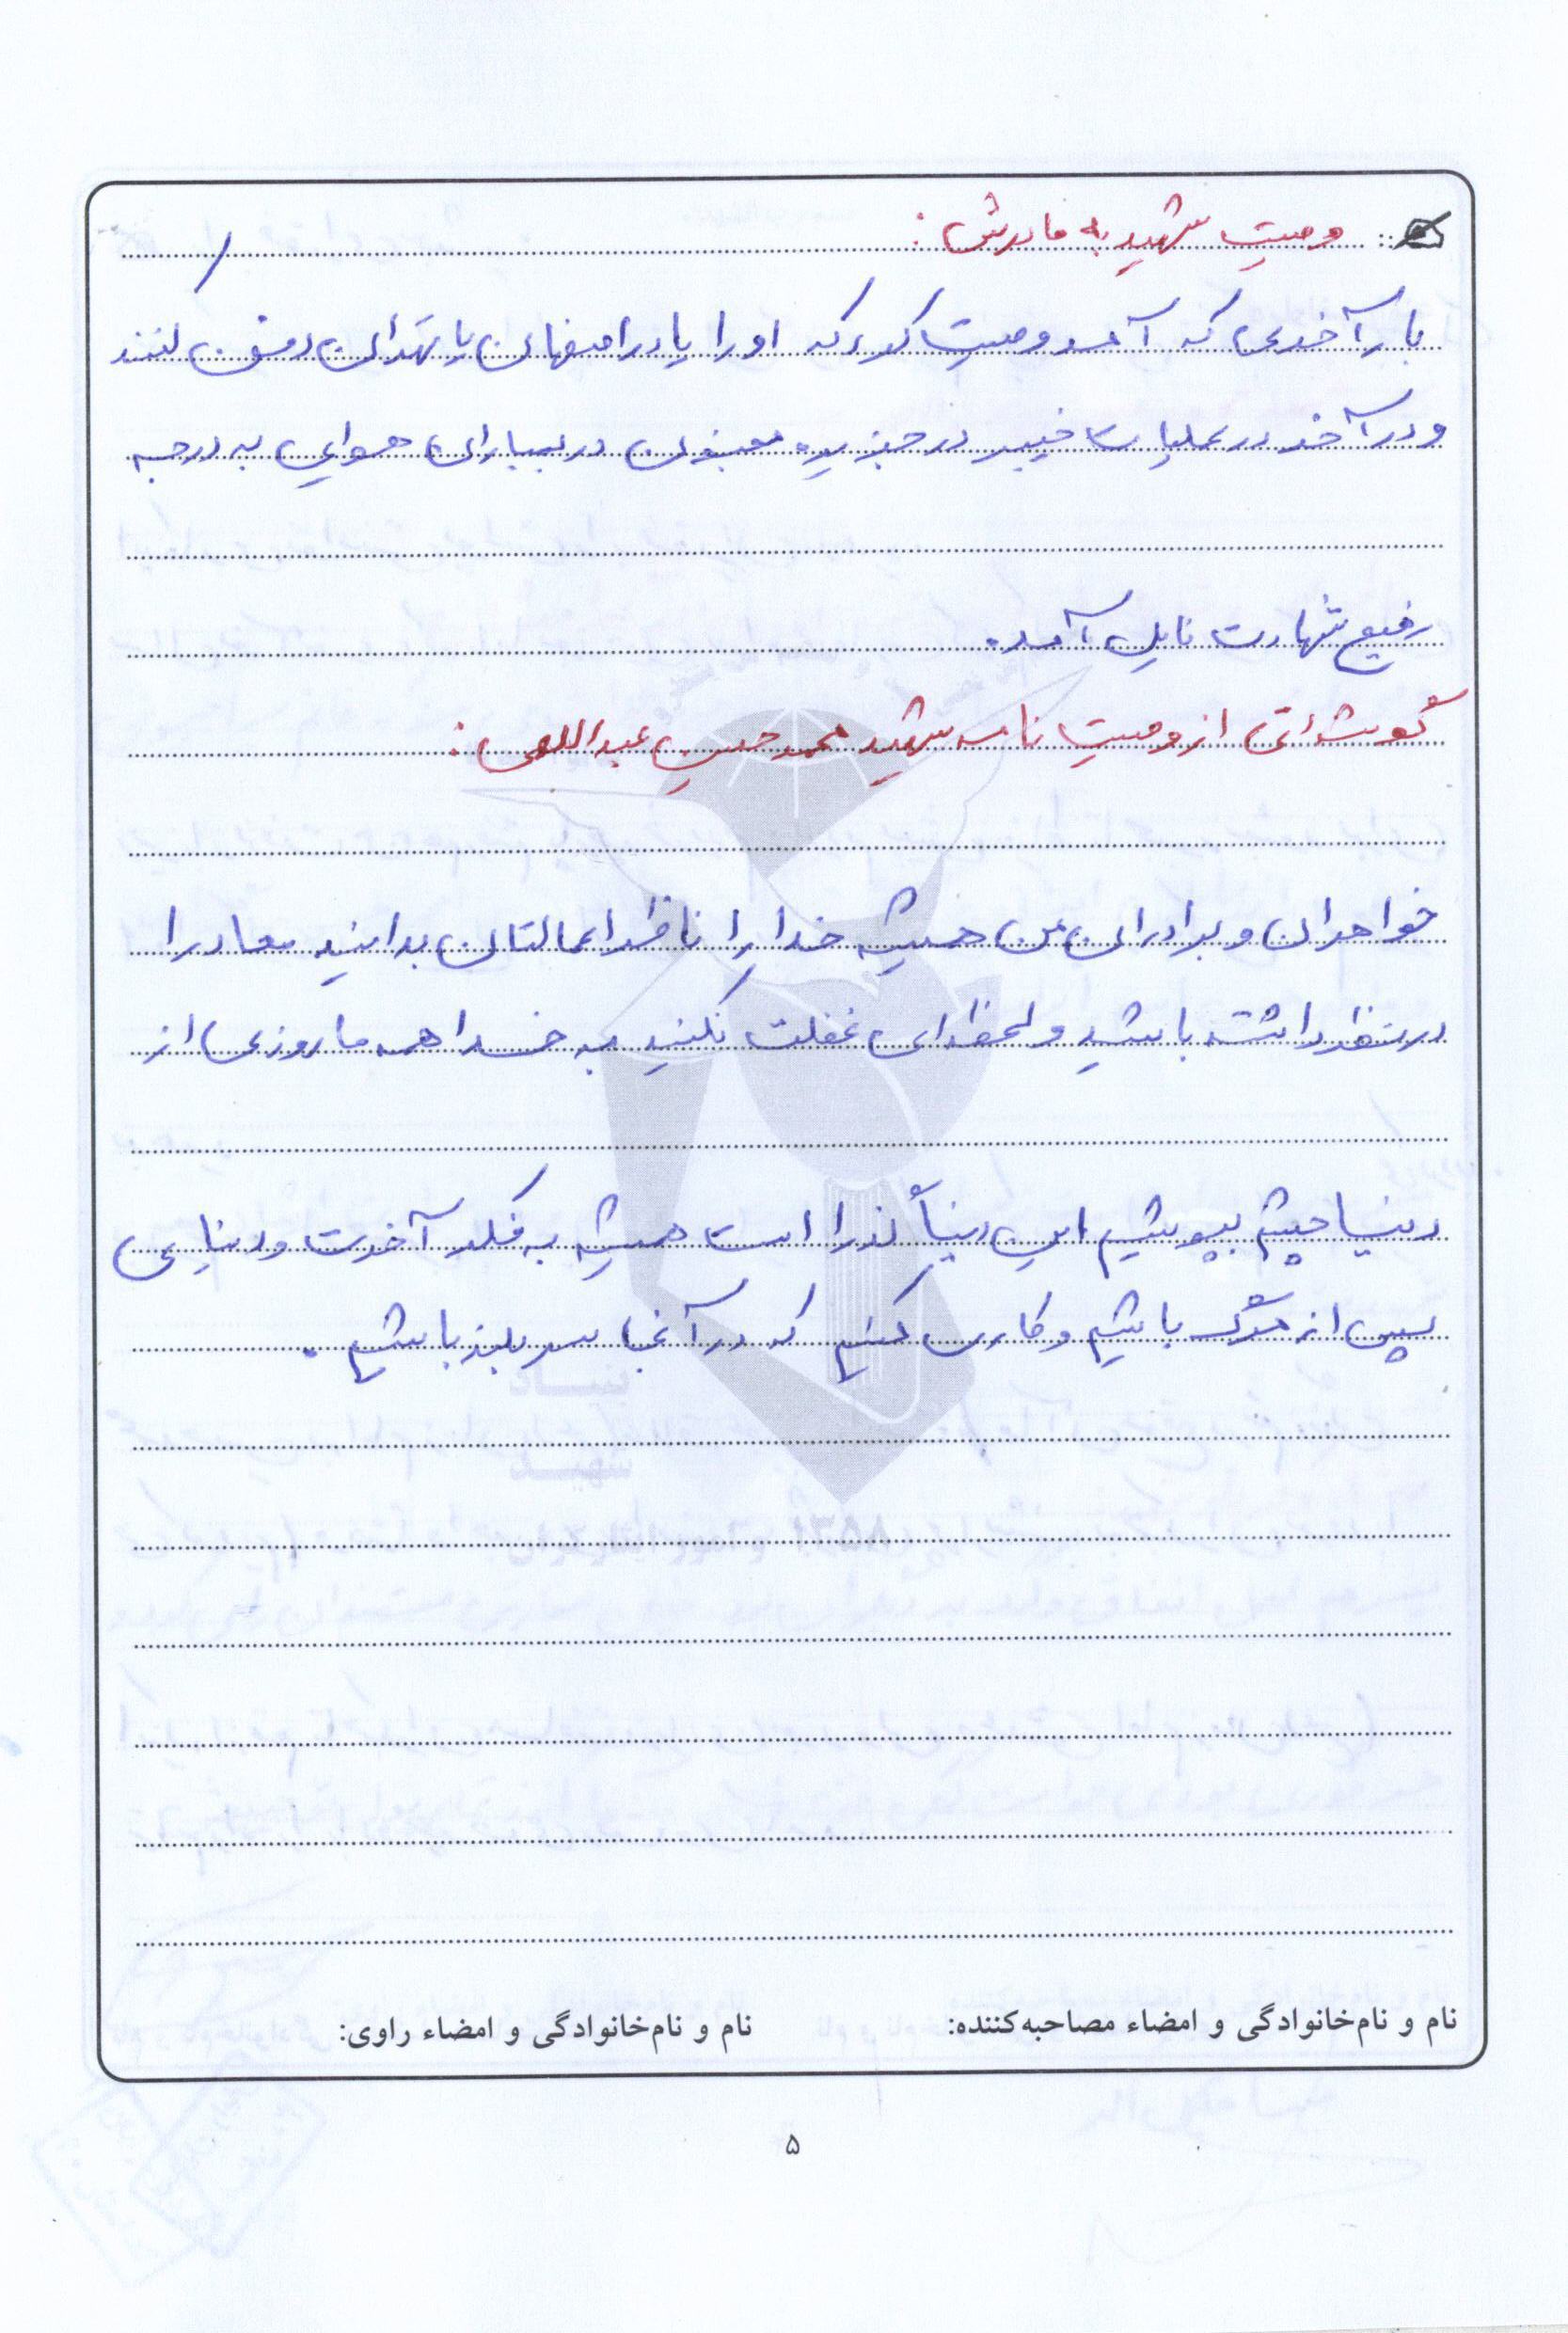 وصیت شهید به مادرش:
بار آخری که آمد وصیت کرد که او را یا در اصفهان یا تهران دفن کنند
و در آخر در عملیات خیبر در جزیره مجنون در بمباران هوایی به درجه
رفیع شهادت نایل آمد.
گوشه‌ای از وصیت نامه شهید محمد حسین عبداللهی:
خواهران و برادران من همیشه خدا را ناظر اعمالتان بدانید معاد را
در نظر داشته باشید و لحظه‌ای غفلت نکنید به خدا همه ما روزی از
دنیا چشم بپوشیم این دنیا گذرا است همیشه به فکر آخرت و دنیایی
پس از مرگ باشیم و کاری کنیم که در آنجا سربلند باشیم.
نام و نام‌خانوادگی و امضاء مصاحبه‌کننده: نام و نام‌خانوادگی و امضاء راوی:
۵